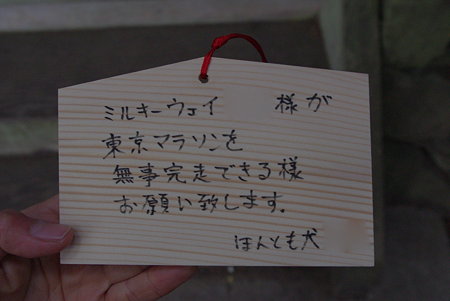 ミルキーウェイ 様が
東京マラソンを
無事完走できる様
お願い致します。
ほんとも犬